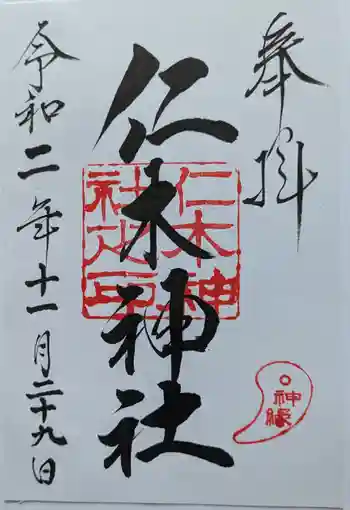 奉拝
仁木神社
仁木神
社之印
令和二年十一月二十九日
神縁